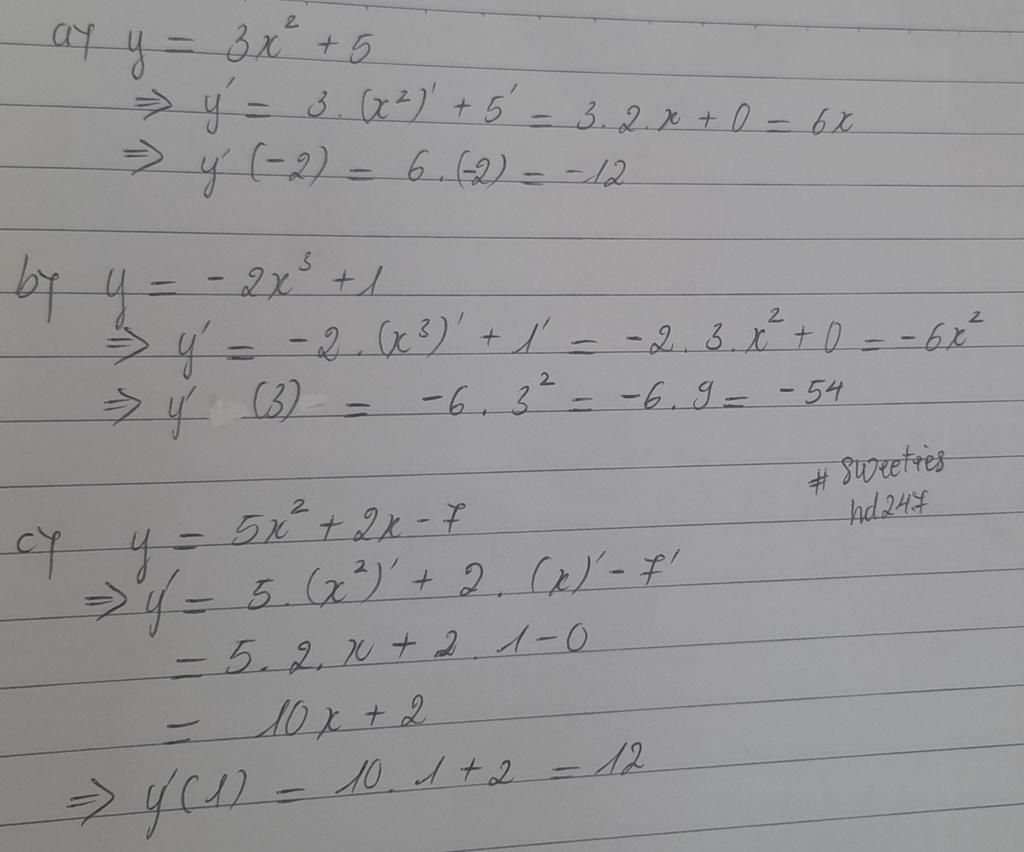 a) y = 3x² + 5
⇒ y' = 3.(x²)' + 5' = 3.2.x + 0 = 6x
⇒ y'(-2) = 6.(-2) = -12
b) y = -2x³ + 1
⇒ y' = -2.(x³)' + 1' = -2.3.x² + 0 = -6x²
⇒ y' (3) = -6.3² = -6.9 = -54
# sweeties
hd247
c) y = 5x² + 2x - 7
⇒ y' = 5.(x²)' + 2.(x)' - 7'
= 5.2.x + 2.1 - 0
= 10x + 2
⇒ y'(1) = 10.1 + 2 = 12